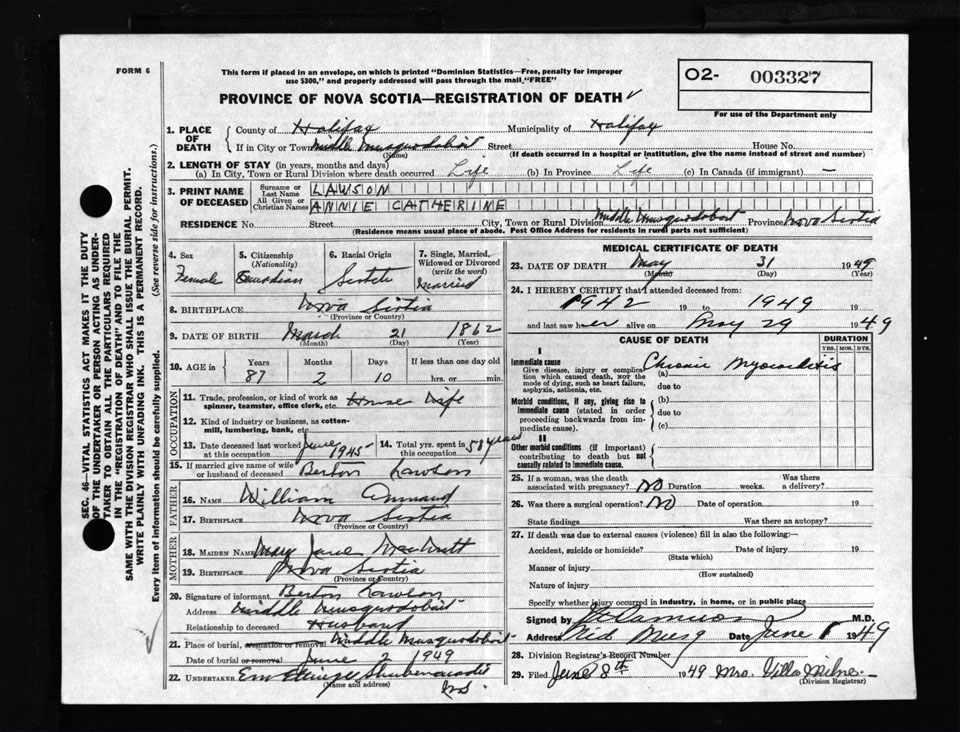 FORM 6
This form if placed in an envelope, on which is printed "Dominion Statistics—Free, penalty for improper
use $300," and properly addressed will pass through the mail, "FREE"
O2- 003327
For use of the Department only
PROVINCE OF NOVA SCOTIA—REGISTRATION OF DEATH
1. PLACE OF DEATH
County of Halifax Municipality of Halifax
If in City or Town Middle Musquodoboit Street House No.
(Name) (If death occurred in a hospital or institution, give the name instead of street and number)
2. LENGTH OF STAY (in years, months and days)
(a) In City, Town or Rural Division where death occurred Life (b) In Province Life (c) In Canada (if immigrant) —
3. PRINT NAME OF DECEASED
Surname or Last Name LAWSON
All Given or Christian Names ANNIE CATHERINE
RESIDENCE No. Street City, Town or Rural Division Middle Musquodoboit Province Nova Scotia
(Residence means usual place of abode. Post Office Address for residents in rural parts not sufficient)
4. Sex Female
5. Citizenship (Nationality) Canadian
6. Racial Origin Scotch
7. Single, Married, Widowed or Divorced (write the word) Married
8. BIRTHPLACE Nova Scotia
(Province or Country)
9. DATE OF BIRTH March 21 1862
(Month) (Day) (Year)
10. AGE in Years Months Days If less than one day old
87 2 10 hrs. or min.
OCCUPATION
11. Trade, profession, or kind of work as spinner, teamster, office clerk, etc. House wife
12. Kind of industry or business, as cotton-mill, lumbering, bank, etc.
13. Date deceased last worked at this occupation June 1945 14. Total yrs. spent in this occupation 58 years
15. If married give name of wife or husband of deceased Berton Lawson
FATHER
16. NAME William
17. BIRTHPLACE Nova Scotia
(Province or Country)
MOTHER
18. MAIDEN NAME May Jane
19. BIRTHPLACE Nova Scotia
(Province or Country)
20. Signature of informant Berton Lawson
Address Middle Musquodoboit
Relationship to deceased Husband
21. Place of burial, cremation or removal Middle Musquodoboit
Date of burial or removal June 2 1949
22. UNDERTAKER Shubenacadie
(Name and address) N.S.
MEDICAL CERTIFICATE OF DEATH
23. DATE OF DEATH May 31 1949
(Month) (Day) (Year)
24. I HEREBY CERTIFY that I attended deceased from:
1942 19 to 1949 19
and last saw her alive on May 29 1949
CAUSE OF DEATH DURATION
YRS. MOS. DYS.
I
Immediate cause
Give disease, injury or complication which caused death, not the mode of dying, such as heart failure, asphyxia, asthenia, etc.
(a) Chronic Myocarditis
due to
Morbid conditions, if any, giving rise to immediate cause (stated in order proceeding backwards from immediate cause).
(b)
due to
(c)
II
Other morbid conditions (if important) contributing to death but not causally related to immediate cause.
25. If a woman, was the death associated with pregnancy? No Duration weeks. Was there a delivery?
26. Was there a surgical operation? No Date of operation 19
State findings Was there an autopsy?
27. If death was due to external causes (violence) fill in also the following:—
Accident, suicide or homicide? Date of injury 19
(State which)
Manner of injury
(How sustained)
Nature of injury
Specify whether injury occurred in industry, in home, or in public place
Signed by M.D.
Address Mid Musq Date June 1949
28. Division Registrar's Record Number
29. Filed June 8th 1949 Mrs. Villa Milne
(Division Registrar)
SEC. 46—VITAL STATISTICS ACT MAKES IT THE DUTY
OF THE UNDERTAKER OR PERSON ACTING AS UNDER-
TAKER TO OBTAIN ALL THE PARTICULARS REQUIRED
IN THE "REGISTRATION OF DEATH" AND TO FILE THE
SAME WITH THE DIVISION REGISTRAR WHO SHALL ISSUE THE BURIAL PERMIT.
WRITE PLAINLY WITH UNFADING INK. THIS IS A PERMANENT RECORD.
Every item of information should be carefully supplied. (See reverse side for instructions.)